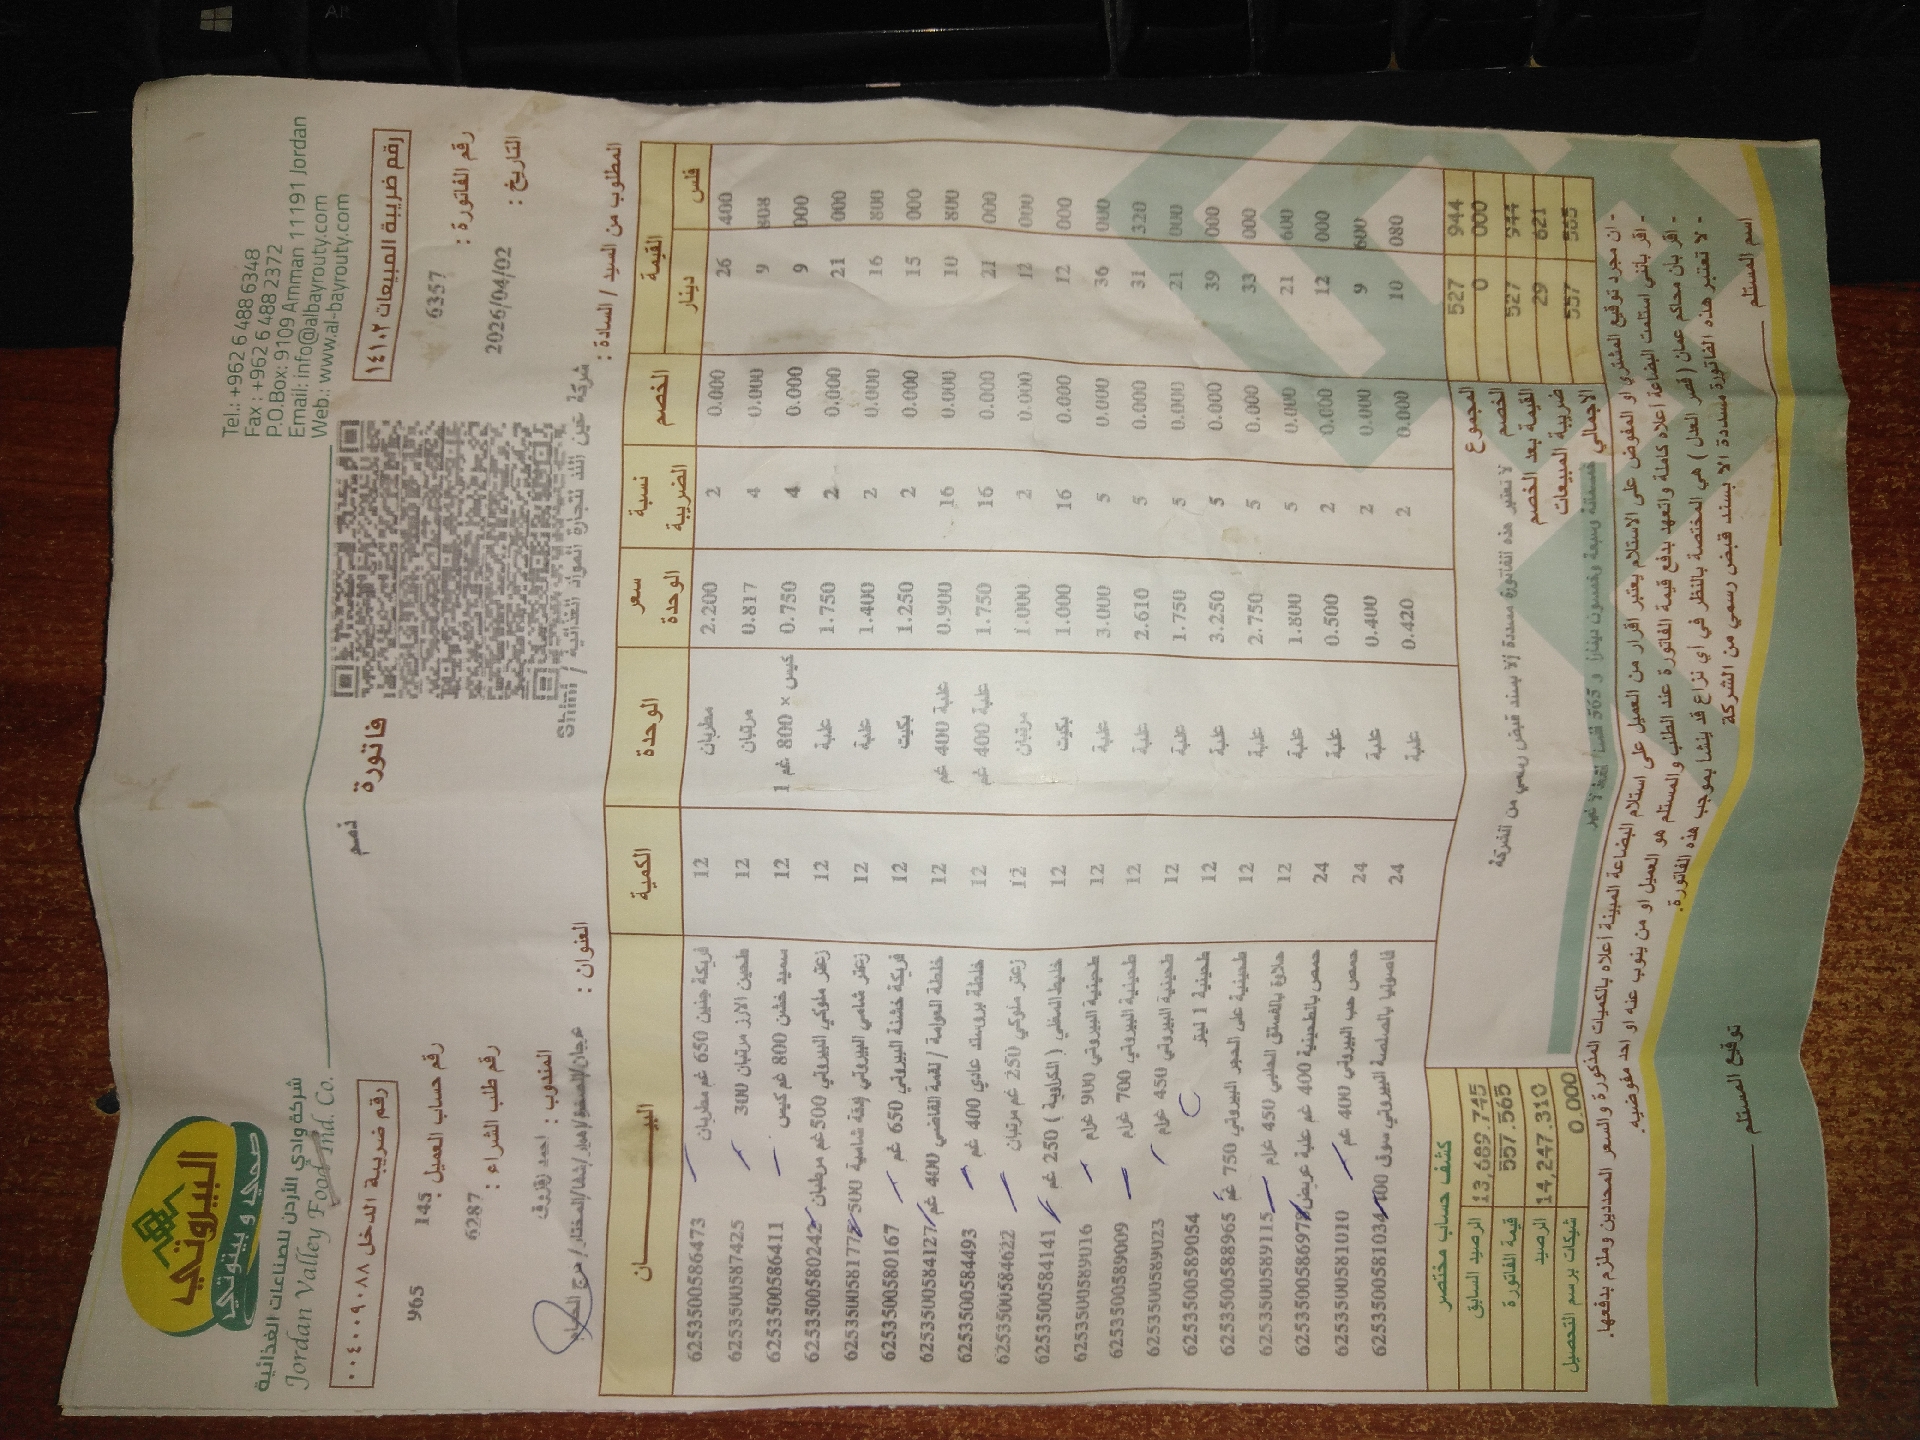 البيروتي
صحي و بيتوتي
شركة وادي الأردن للصناعات الغذائية
Jordan Valley Food Ind. Co.
Tel.: +962 6 488 6348
Fax : +962 6 488 2372
P.O.Box: 9109 Amman 11191 Jordan
Email: info@albayrouty.com
Web.: www.al-bayrouty.com
رقم ضريبة الدخل ٠٠٤٠٠٩٠٨٨
فاتورة ذمم
رقم ضريبة المبيعات ١٤١٠٢
رقم حساب العميل : 145 965
رقم الفاتورة : 6357
رقم طلب الشراء : 6287
التاريخ : 2026/04/02
المندوب : احمد زقزوق
العنوان :
المطلوب من السيد / السادة : شركة عين الغذ لتجارة المواد الغذائية / Shini
البيــــــان الكمية الوحدة سعر الوحدة نسبة الضريبة الخصم القيمة دينار فلس
6253500586473 فريكة جنين 650 غم مطربان 12 مطربان 2.200 2 0.000 26 400
6253500587425 طحين الارز مرتبان 300 12 مرتبان 0.817 4 0.000 9 808
6253500586411 سميد خشن 800 غم كيس 12 كيس × 800 غم 1 0.750 4 0.000 9 000
6253500580242 زعتر ملوكي البيروتي 500 غم مرطبان 12 علبة 1.750 2 0.000 21 000
6253500581775 زعتر شامي البيروتي زقة شامية 500 12 علبة 1.400 2 0.000 16 800
6253500580167 فريكة خشنة البيروتي 650 غم 12 بكيت 1.250 2 0.000 15 000
6253500584127 خلطة العوامة / لقمة القاضي 400 غم 12 علبة 400 غم 0.900 16 0.000 10 800
6253500584493 خلطة بروستد عادي 400 غم 12 علبة 400 غم 1.750 16 0.000 21 000
6253500584622 زعتر ملوكي 250 غم مرتبان 12 مرتبان 1.000 2 0.000 12 000
6253500584141 خليط المغلي ( الكراوية ) 250 غم 12 بكيت 1.000 16 0.000 12 000
6253500589016 طحينية البيروتي 900 غرام 12 علبة 3.000 5 0.000 36 000
6253500589009 طحينية البيروتي 700 غرام 12 علبة 2.610 5 0.000 31 320
6253500589023 طحينية البيروتي 450 غرام 12 علبة 1.750 5 0.000 21 000
6253500589054 طحينية 1 ليتر 12 علبة 3.250 5 0.000 39 000
6253500588965 طحينية على الحجر البيروتي 750 غم 12 علبة 2.750 5 0.000 33 000
6253500589115 حلاوة بالفستق الحلبي 450 غرام 12 علبة 1.800 5 0.000 21 600
6253500586978 حمص بالطحينية 400 غم علبة عريض 24 علبة 0.500 2 0.000 12 000
6253500581010 حمص حب البيروتي 400 غم 24 علبة 0.400 2 0.000 9 600
6253500581034 فاصوليا بالصلصة البيروتي 400 24 علبة 0.420 2 0.000 10 080
كشف حساب مختصر
الرصيد السابق 13,689.745
قيمة الفاتورة 557.565
الرصيد 14,247.310
شيكات برسم التحصيل 0.000
لا تعتبر هذه الفاتورة مسددة إلا بسند قبض رسمي من الشركة
خمسمائة وسبعة وخمسون دينارا و 565 فلسا فقط لا غير
المجموع 527 944
الخصم 0 000
القيمة بعد الخصم 527 944
ضريبة المبيعات 29 621
الاجمالي 557 565
- ان مجرد توقيع المشتري او المفوض على الاستلام يعتبر اقرار من العميل على استلام البضاعة المبينة أعلاه بالكميات المذكورة والسعر المحددين وملزم بدفعها.
- اقر بانني استلمت البضاعة أعلاه كاملة واتعهد بدفع قيمة الفاتورة عند الطلب والمستلم هو العميل او من ينوب عنه او احد مفوضيه.
- اقر بان محاكم عمان ( قصر العدل ) هي المختصة بالنظر في اي نزاع قد ينشا بموجب هذه الفاتورة.
- لا تعتبر هذه الفاتورة مسددة الا بسند قبض رسمي من الشركة
اسم المستلم
توقيع المستلم